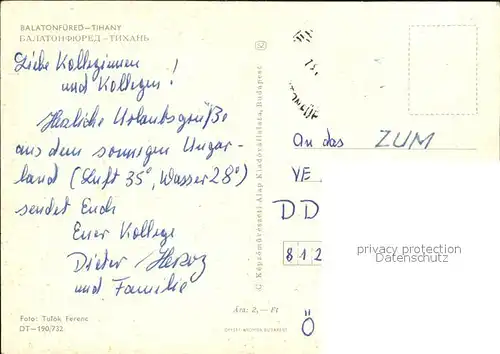 BALATONFÜRED—TIHANY
БАЛАТОНФЮРЕД - ТИХАНЬ
Liebe Kolleginnen
und Kollegen!
Herzliche Urlaubsgrüße
aus dem sonnigen Ungar-
land (Luft 35°, Wasser 28°)
sendet Euch
Euer Kollege
Dieter
und Familie
Foto: Tulók Ferenc
DT—190,732
Ára: 2,— Ft
OFFSET
BUDAPEST
Képzőművészeti Alap Kiadóvállalata, Budapest
An das ZUM
VE
DD
812
Ö
privacy protection